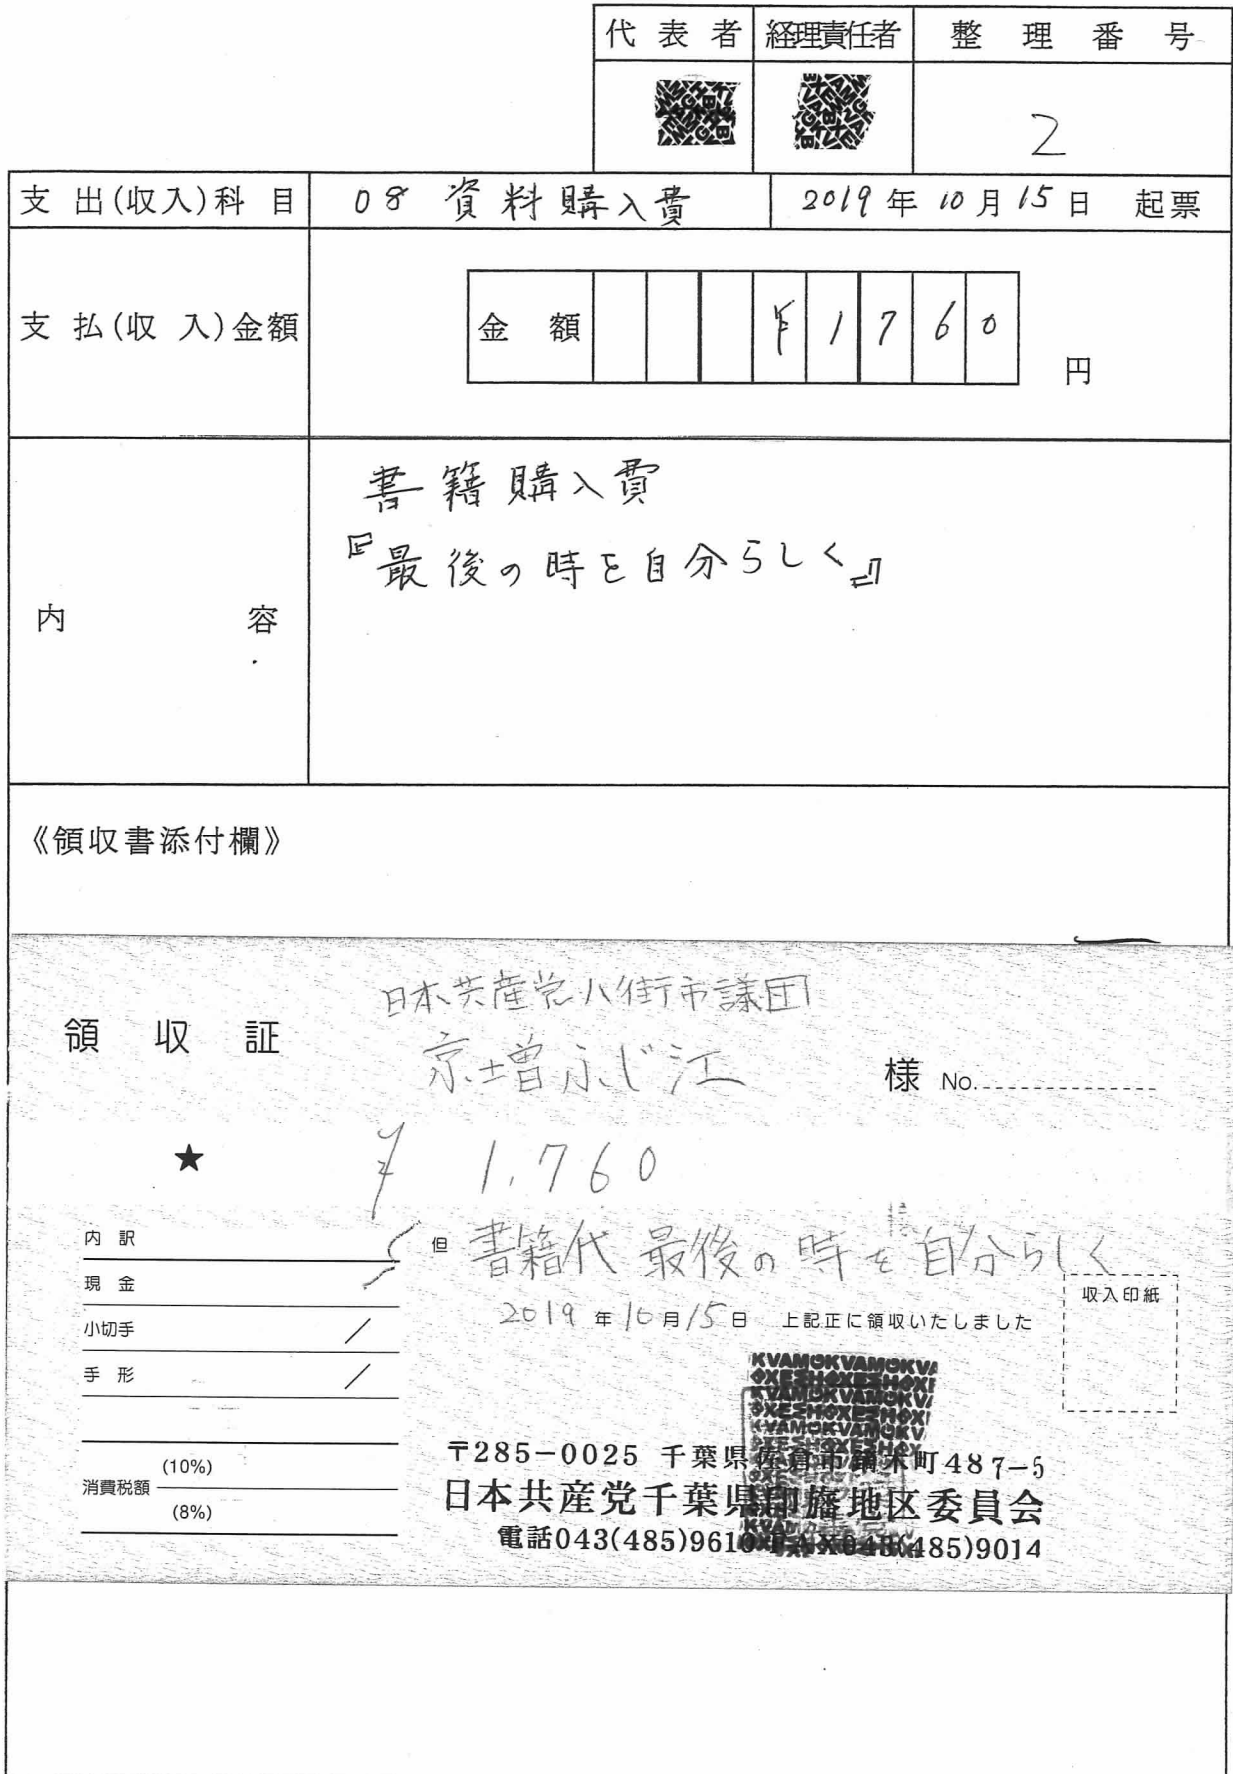 代表者 経理責任者 整理番号
2
支出(収入)科目 08 資料購入費 2019年10月15日 起票
支払(収入)金額 金額 ¥1760 円
書籍購入費
『最後の時を自分らしく』
内容
《領収書添付欄》
日本共産党八街市議団
領収証 京増ふじ江 様 No.
★ ¥1,760
内訳 但 書籍代 最後の時を自分らしく
現金
収入印紙
小切手 2019年10月15日 上記正に領収いたしました
手形
(10%)
消費税額
(8%)
〒285-0025 千葉県佐倉市鏑木町487-5
日本共産党千葉県印旛地区委員会
電話043(485)9610 FAX043(485)9014